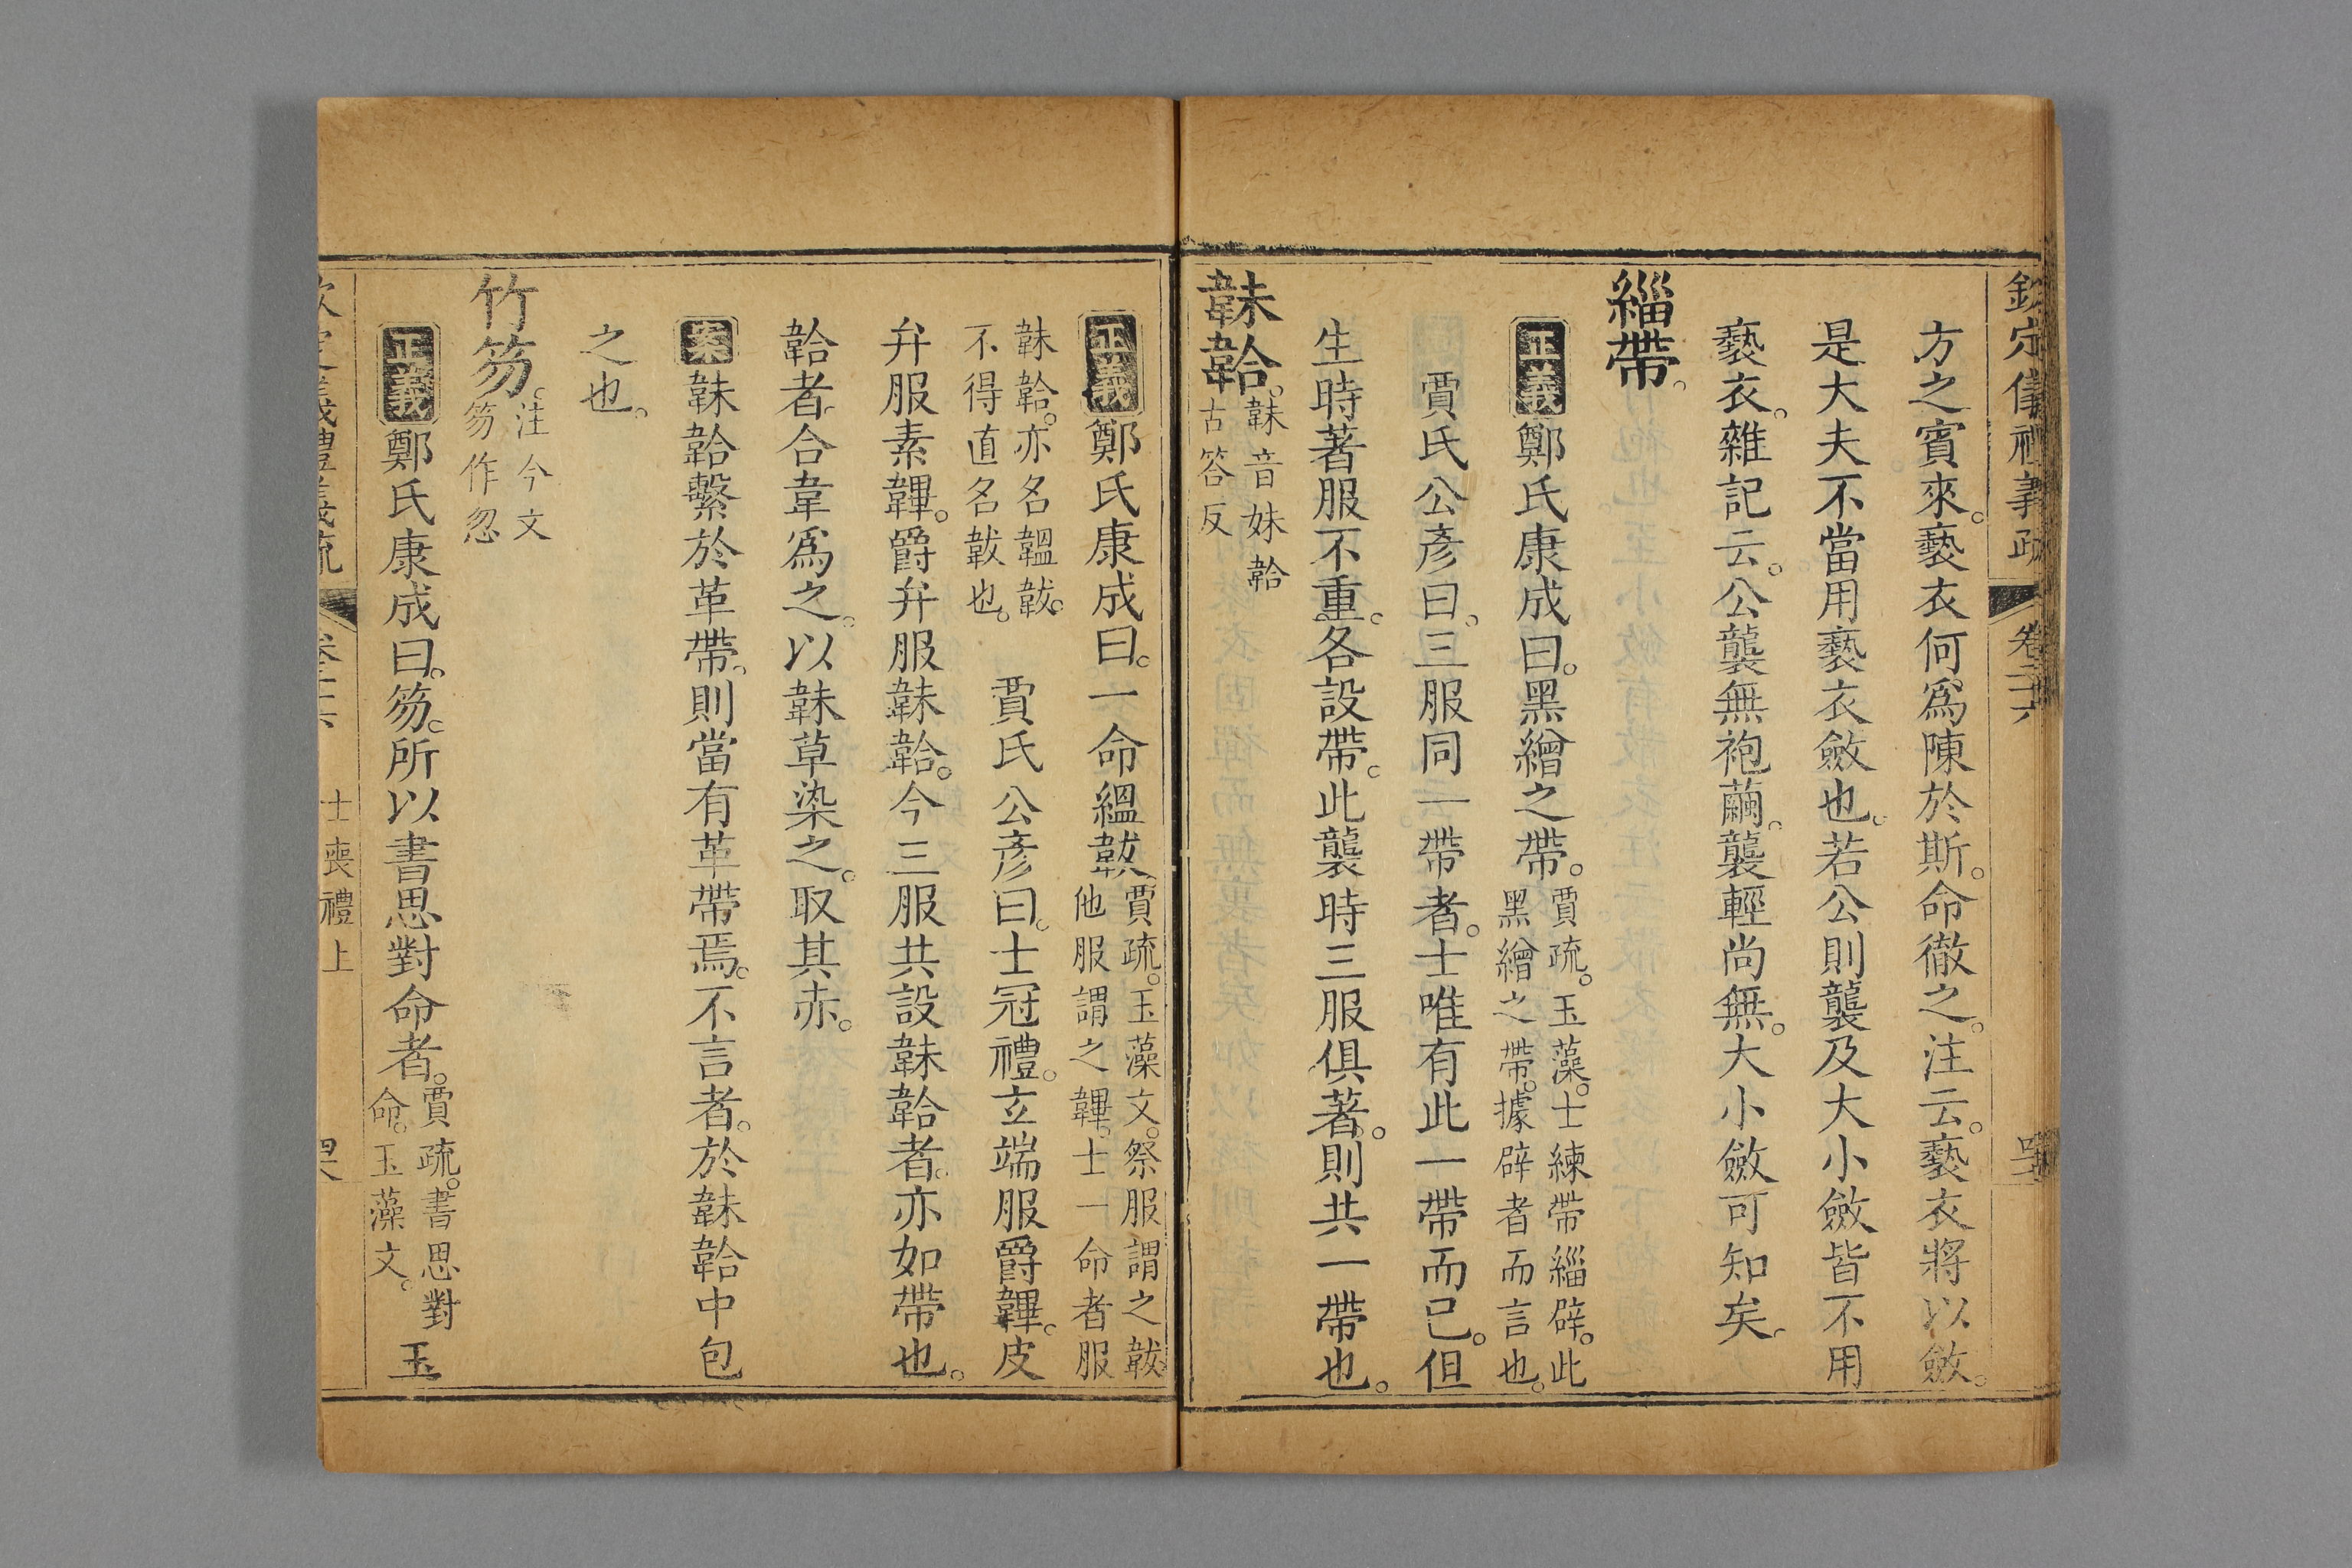 欽定儀禮義疏 卷二十六
方之賓來。褻衣何爲陳於斯。命徹之。注云。褻衣將以斂。
是大夫不當用褻衣斂也。若公則襲及大小斂皆不用
褻衣。雜記云。公襲無袍繭。襲輕尚無。大小斂可知矣。
緇帶。
正義鄭氏康成曰。黑繒之帶。賈疏。玉藻。士練帶緇辟。此
黑繒之帶。據辟者而言也。
賈氏公彥曰。三服同一帶者。士唯有此一帶而已。但
生時著服不重。各設帶。此襲時三服俱著。則共一帶也。
韎韐。韎音妹韐
古答反
正義鄭氏康成曰。一命縕韍賈疏。玉藻文。祭服謂之韍。
他服謂之韠。士一命者服
韎韐。亦名韞韍。
不得直名韍也。
賈氏公彥曰。士冠禮。玄端服爵韠。皮
弁服素韠。爵弁服韎韐。今三服共設韎韐者。亦如帶也。
韐者。合韋爲之。以韎草染之。取其赤。
案韎韐繫於革帶。則當有革帶焉。不言者。於韎韐中包
之也。
竹笏。注今文
笏作忽
正義鄭氏康成曰。笏。所以書思對命者。賈疏。書思對
命。玉藻文。
玉
欽定儀禮義疏 卷二十六 士喪禮上